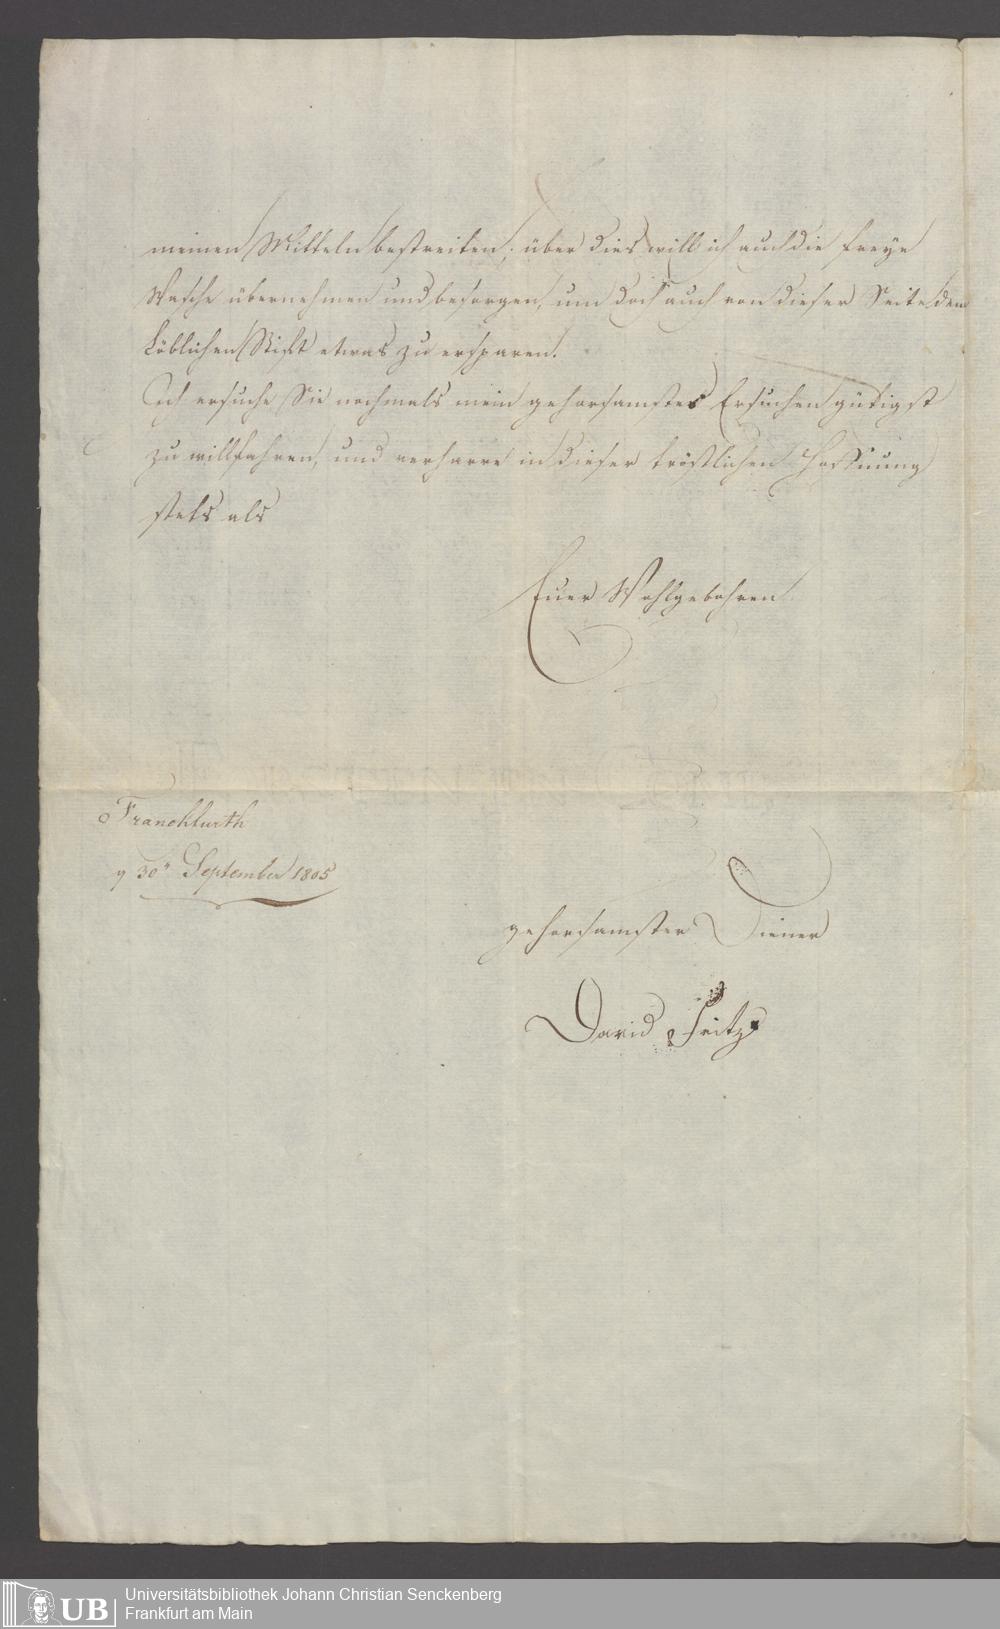 meinen Mitteln bestreiten; über dies will ich auch die freye
Wasche übernehmen und besorgen, um doch auch von dieser Seite dem
Löblichen Stift etwas zu ersparen.
Ich ersuche Sie nochmals mein gehorsamstes Ersuchen gütigst
zu willfahren, und verharre in dieser tröstlichen Hoffnung
stets als
Euer Wohlgebohren
Franckfurth
30 September 1805
gehorsamster Diener
David Fritz
UB
Universitätsbibliothek Johann Christian Senckenberg
Frankfurt am Main